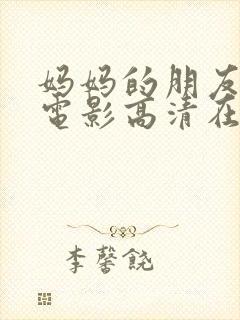 妈妈的朋友
電影高清在
李馨饶